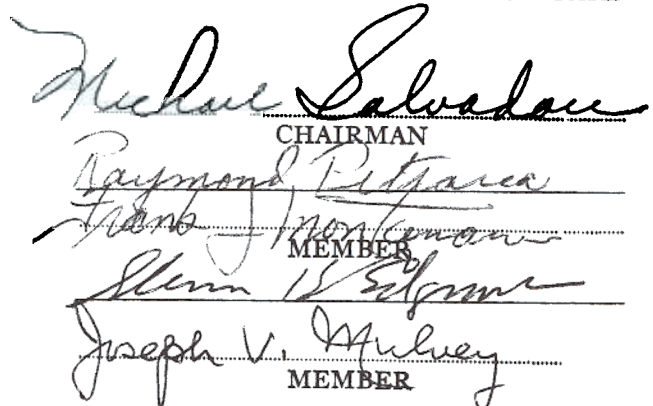 Michael Salvadore
CHAIRMAN
Raymond Petrarca
Frank J Montanaro
MEMBER
Glenn
Joseph V. Mulvey
MEMBER